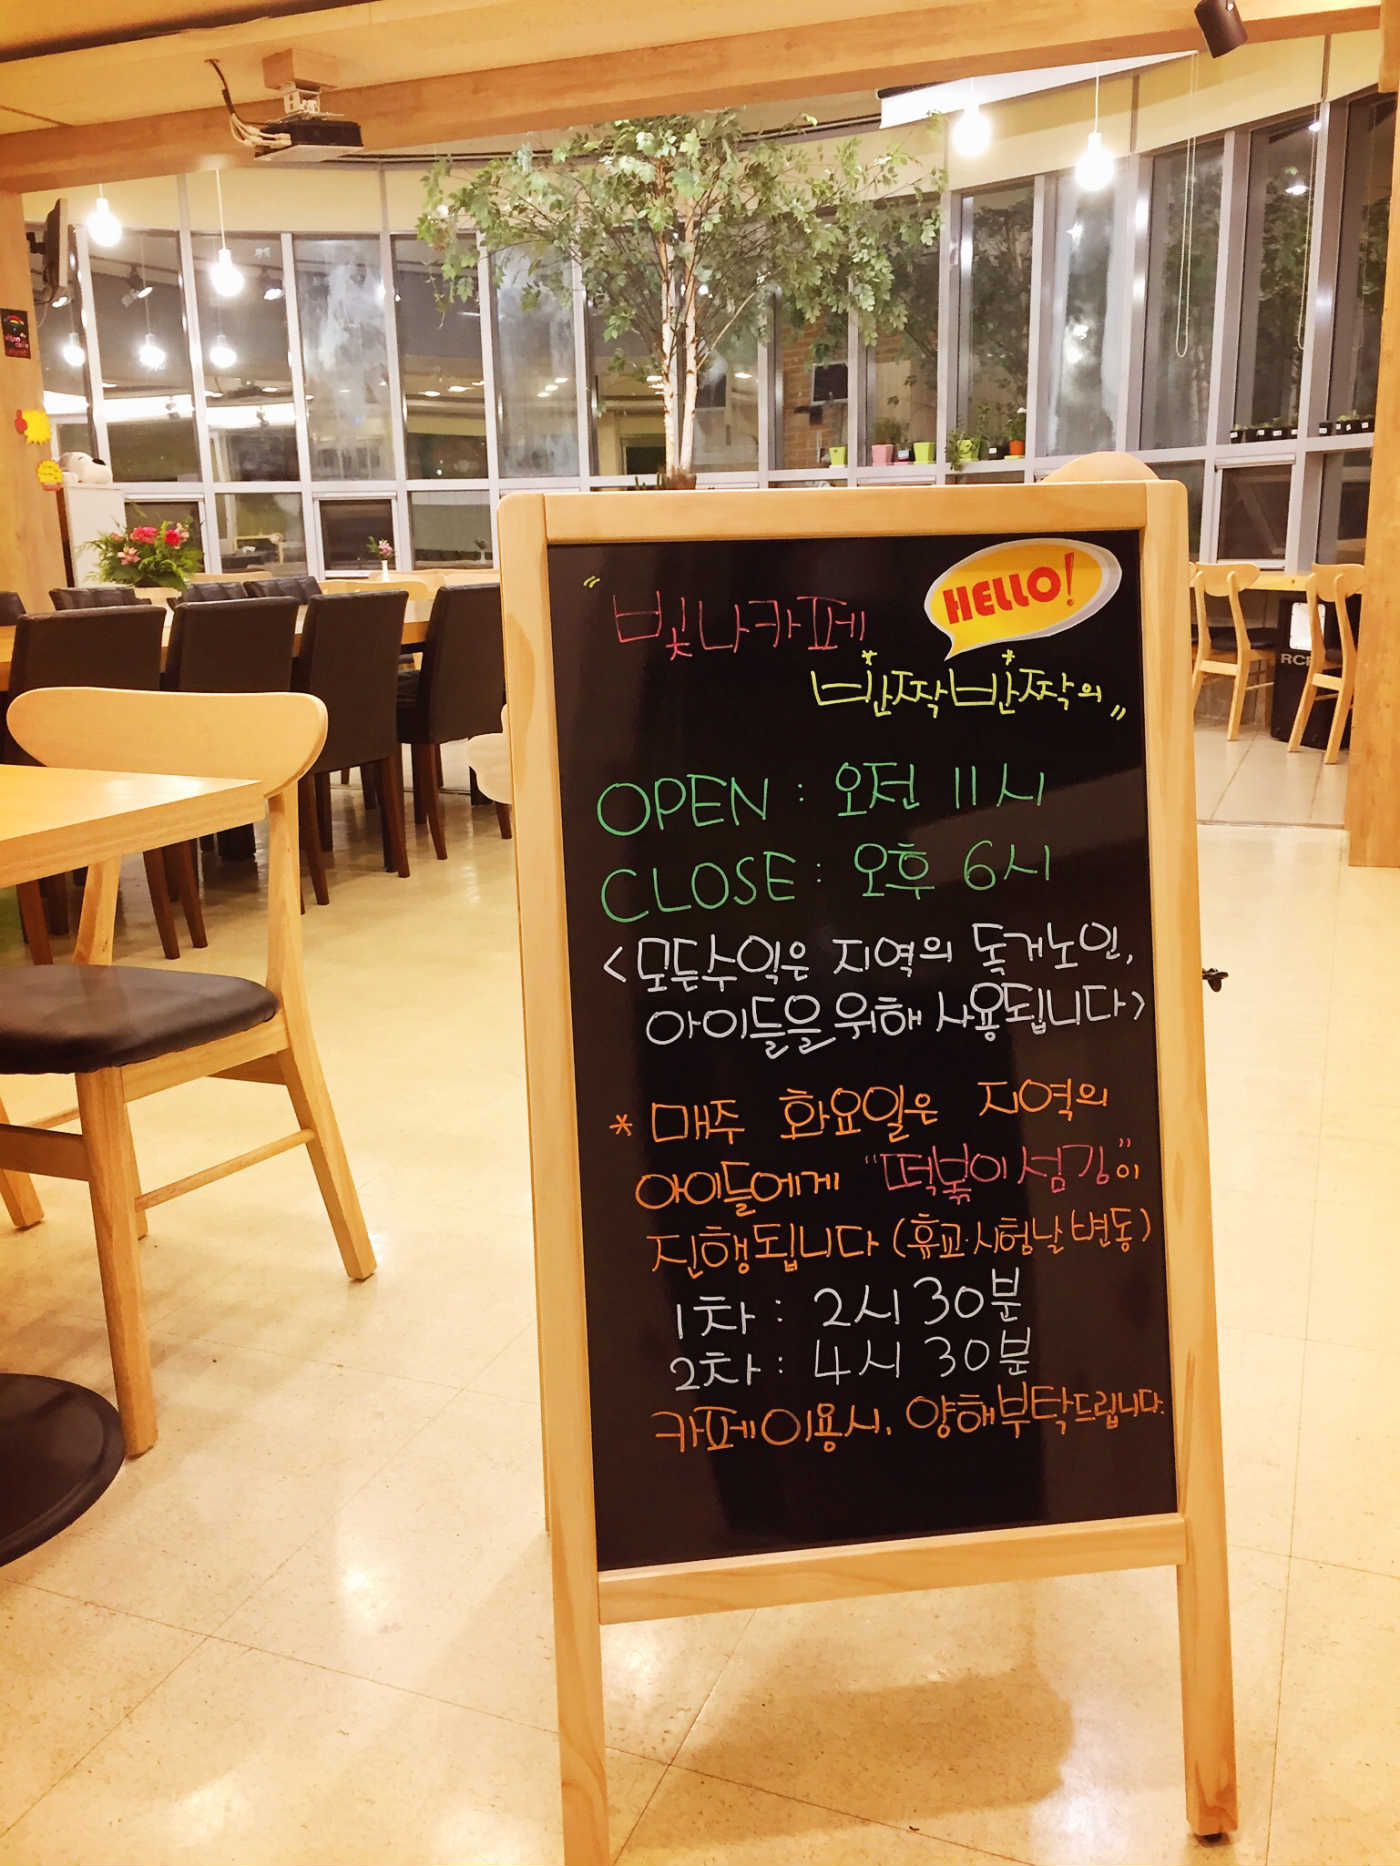 HELLO!
"빛나카페
반짝반짝의"
OPEN : 오전 11시
CLOSE : 오후 6시
<모든수익은 지역의 독거노인,
아이들을 위해 사용됩니다>
* 매주 화요일은 지역의
아이들에게 "떡볶이 섬김"이
진행됩니다 (휴교·시험날 변동)
1차 : 2시 30분
2차 : 4시 30분
카페이용시, 양해부탁드립니다.
RCF